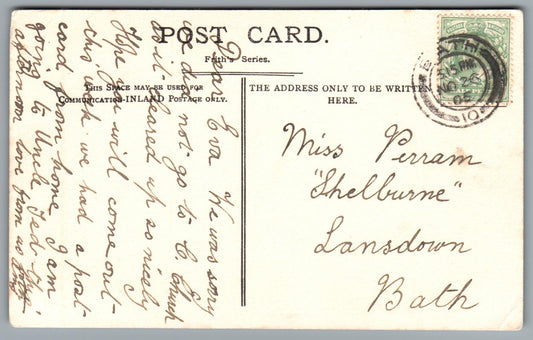 POST CARD.
Frith's Series.
THIS SPACE MAY BE USED FOR
COMMUNICATION-INLAND POSTAGE ONLY.
THE ADDRESS ONLY TO BE WRITTEN
HERE.
Dear Eva We was sory
we did not go to C. Church
as it cleared up so nicely
Hope you will come out
this week we had a post
card from home I am
going to Uncle Ted this
afternoon love from us
Miss Perram
"Shelburne"
Lansdown
Bath
BATH
15 PM
NO 26